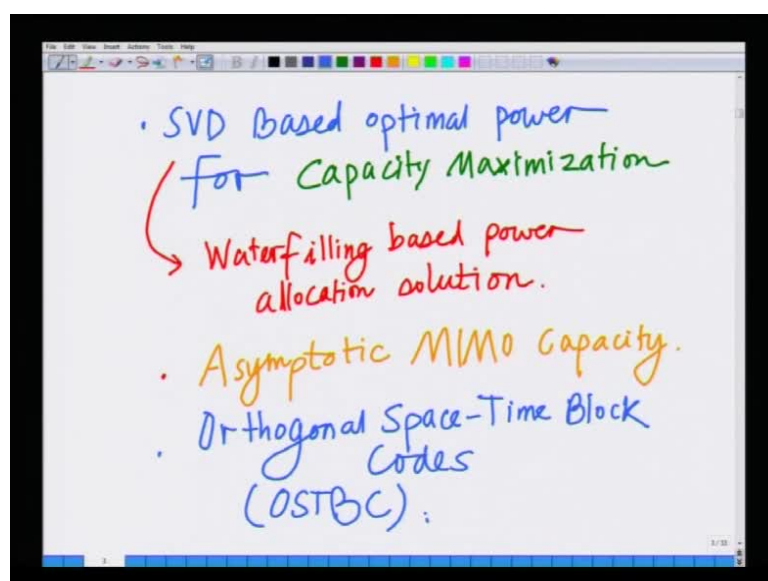 File Edit View Insert Actions Tools Help
· SVD Based optimal power
for Capacity Maximization
Waterfilling based power
allocation solution.
· Asymptotic MIMO Capacity.
· Orthogonal Space-Time Block
Codes
(OSTBC).